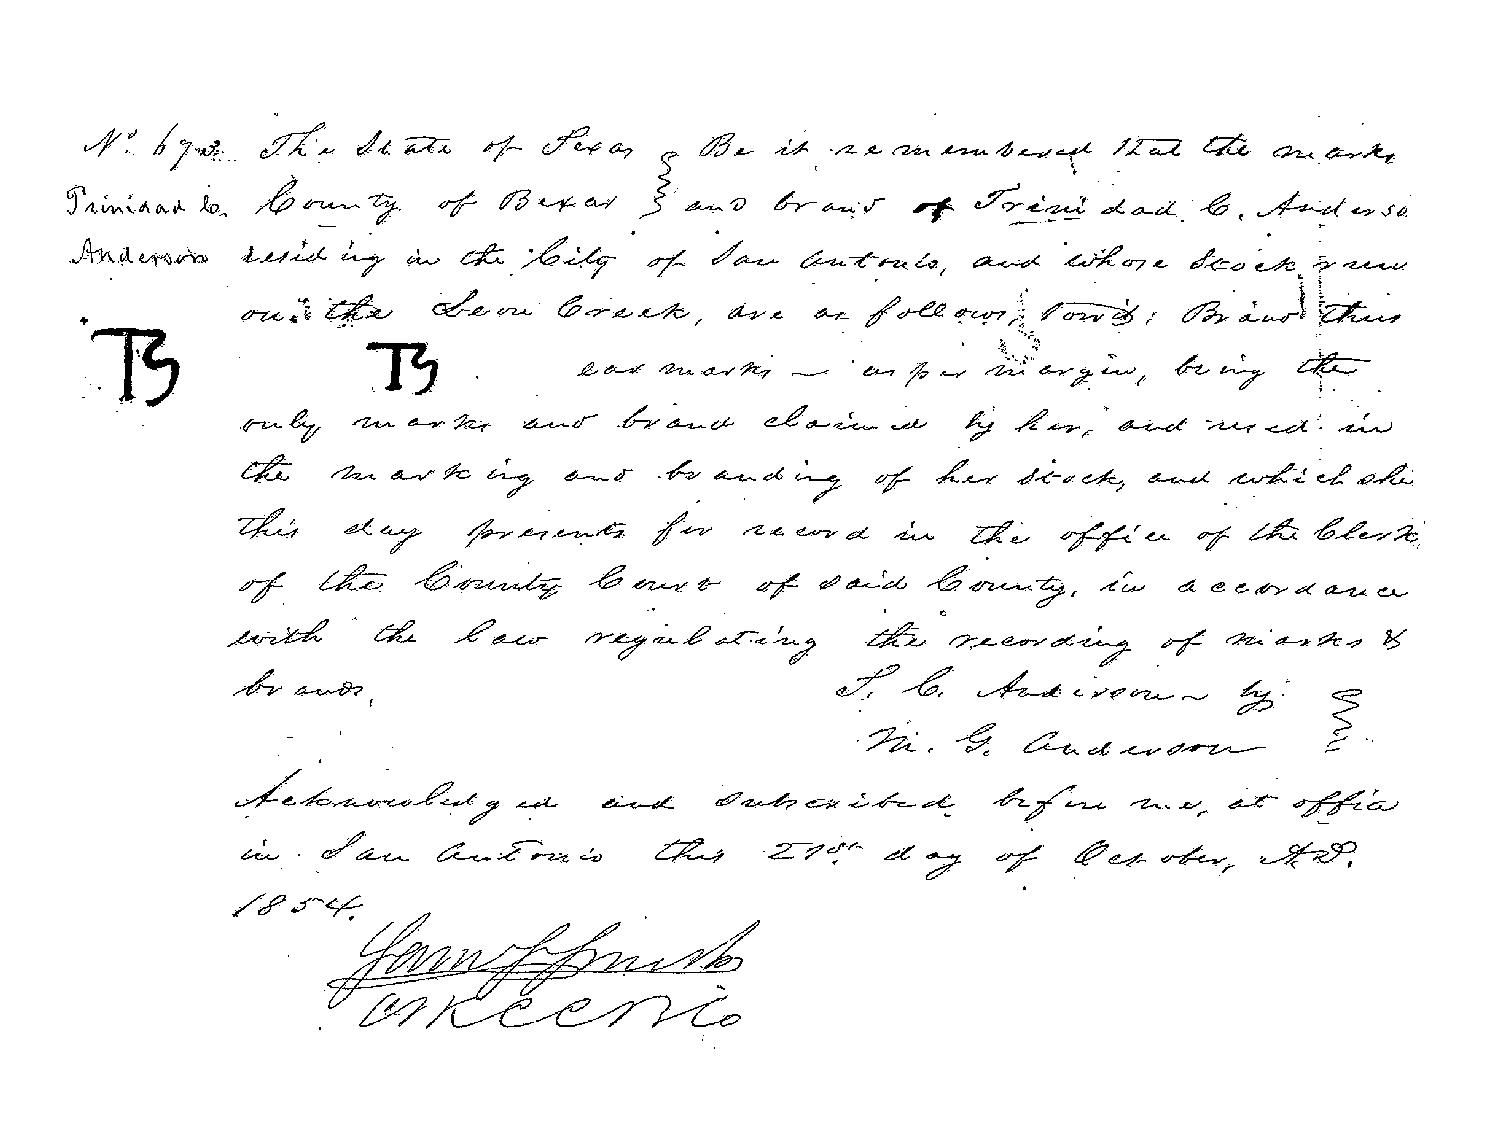 No. 673. The State of Texas Be it remembered that the marks
Trinidad C. County of Bexar and brand of Trinidad C. Anderso
Anderson residing in the City of San Antonio, and whose stock run
on the Leon Creek, are as follows, Towit: Brand thus
TB TB ear marks — as per margin, being the
only marks and brand claimed by her, and used in
the marking and branding of her stock, and which she
this day presents for record in the office of the Clerk
of the County Court of said County, in accordance
with the law regulating the recording of marks &
brands.
T. C. Anderson – by
M. G. Anderson
Acknowledged and subscribed before me, at office
in San Antonio this 21st day of October, A.D.
1854.
Sam S Smith